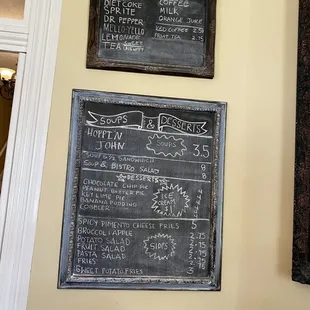 DIET COKE
SPRITE
DR PEPPER
MELLO YELLO
LEMONADE
TEA
COFFEE
MILK
ORANGE JUICE
ICED COFFEE 2.50
FRUIT TEA 2.75
SOUPS & DESSERTS
HOPPIN
JOHN
SOUPS 3.5
SOUP & 1/2 SANDWICH 8
SOUP & BISTRO SALAD 8
DESSERTS
CHOCOLATE CHIP PIE
PEANUT BUTTER PIE
KEY LIME PIE
BANANA PUDDING
COBBLER
ICE
CREAM
SPICY PIMENTO CHEESE FRIES 5
BROCCOLI APPLE 2.75
POTATO SALAD 2.75
FRUIT SALAD
PASTA SALAD
FRIES
SIDES
SWEET POTATO FRIES